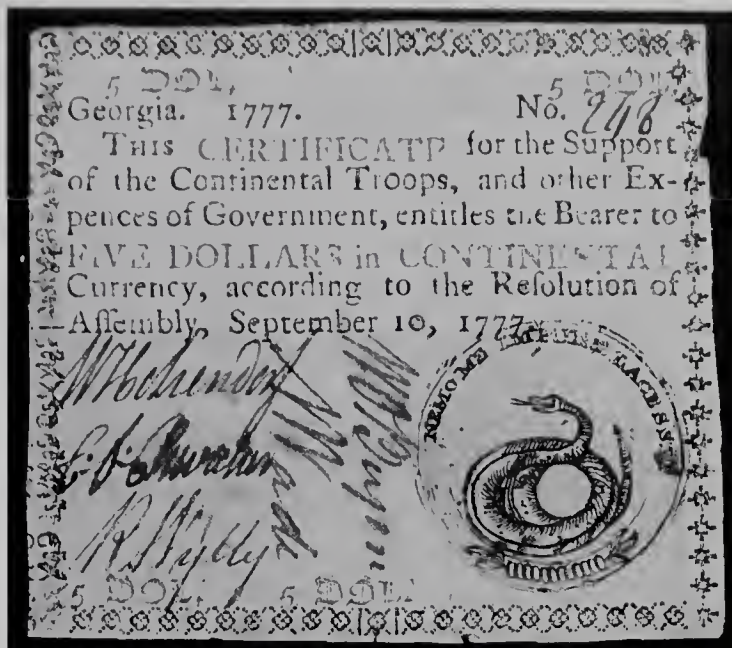 5 DOL. 5 DOL.
Georgia. 1777. No. 248
THIS CERTIFICATE for the Support
of the Continental Troops, and other Ex-
pences of Government, entitles the Bearer to
FIVE DOLLARS in CONTINENTAL
Currency, according to the Reſolution of
Aſſembly, September 10, 1777.
NEMO ME IMPUNE LACESSIT
R Wylly
5 DOL. 5 DOL.